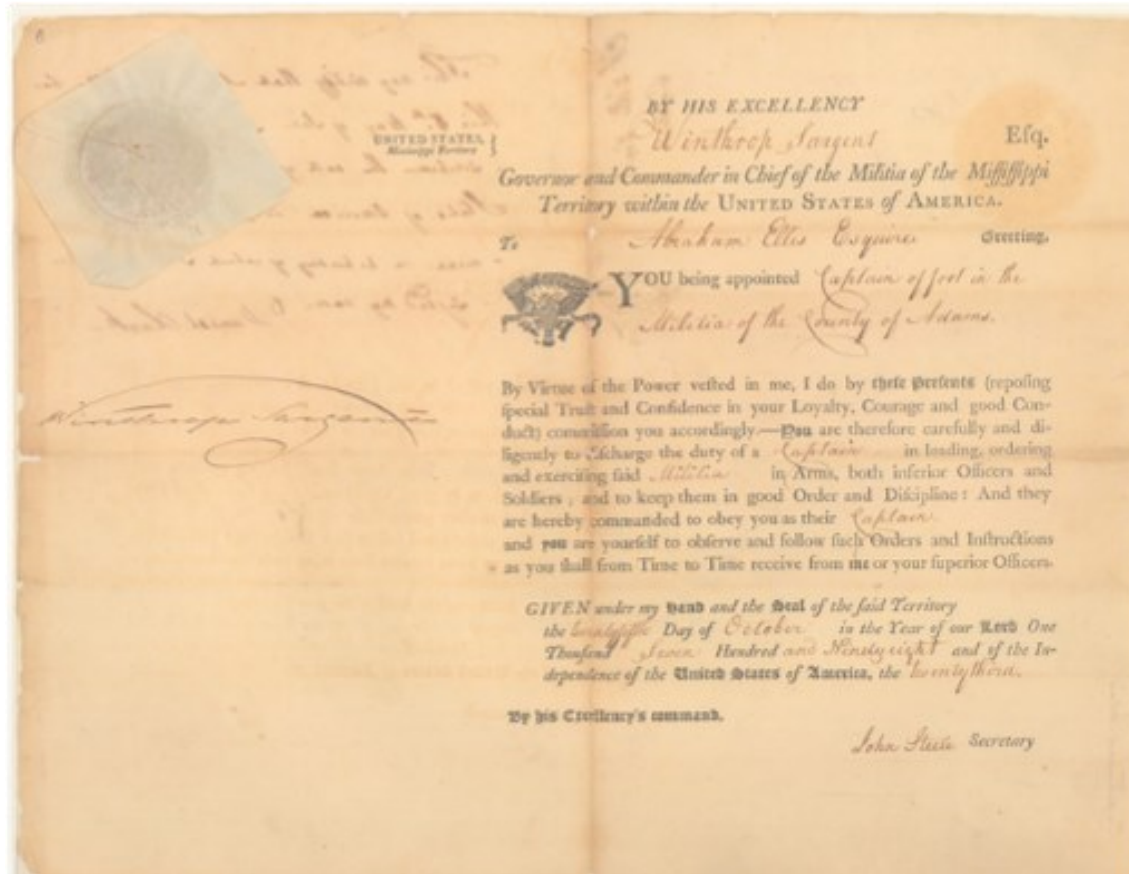 6
UNITED STATES,
Mississippi Territory
BY HIS EXCELLENCY
Winthrop Sargent Esq.
Governor and Commander in Chief of the Militia of the Miſſiſſippi
Territory within the UNITED STATES of AMERICA.
To Abraham Ellis Esquire Greeting,
YOU being appointed Captain of foot in the
Militia of the County of Adams.
Winthrop Sargent
By Virtue of the Power veſted in me, I do by theſe Preſents (repoſing
ſpecial Truſt and Confidence in your Loyalty, Courage and good Con-
duct) commiſſion you accordingly.—You are therefore carefully and di-
ligently to diſcharge the duty of a Captain in leading, ordering
and exerciſing ſaid Militia in Arms, both inferior Officers and
Soldiers; and to keep them in good Order and Diſcipline: And they
are hereby commanded to obey you as their Captain
and you are yourſelf to obſerve and follow ſuch Orders and Inſtructions
as you ſhall from Time to Time receive from me or your ſuperior Officers.
GIVEN under my Hand and the Seal of the ſaid Territory
the twentyfifth Day of October in the Year of our Lord One
Thouſand Seven Hundred and Ninety eight and of the In-
dependence of the United States of America, the twentythird.
By his Excellency's command,
John Steele Secretary